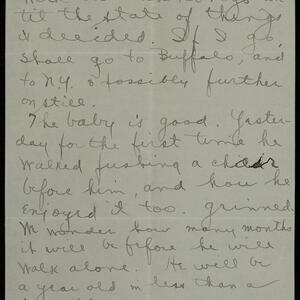 til the state of things
is decided. If I go,
shall go to Buffalo, and
to N.Y. & possibly further
on still.
The baby is good. Yester-
day for the first time he
walked pushing a chair
before him, and how he
enjoyed it too. grinned
wonder how many months
it will be before he will
walk alone. He will be
a year old in less than a